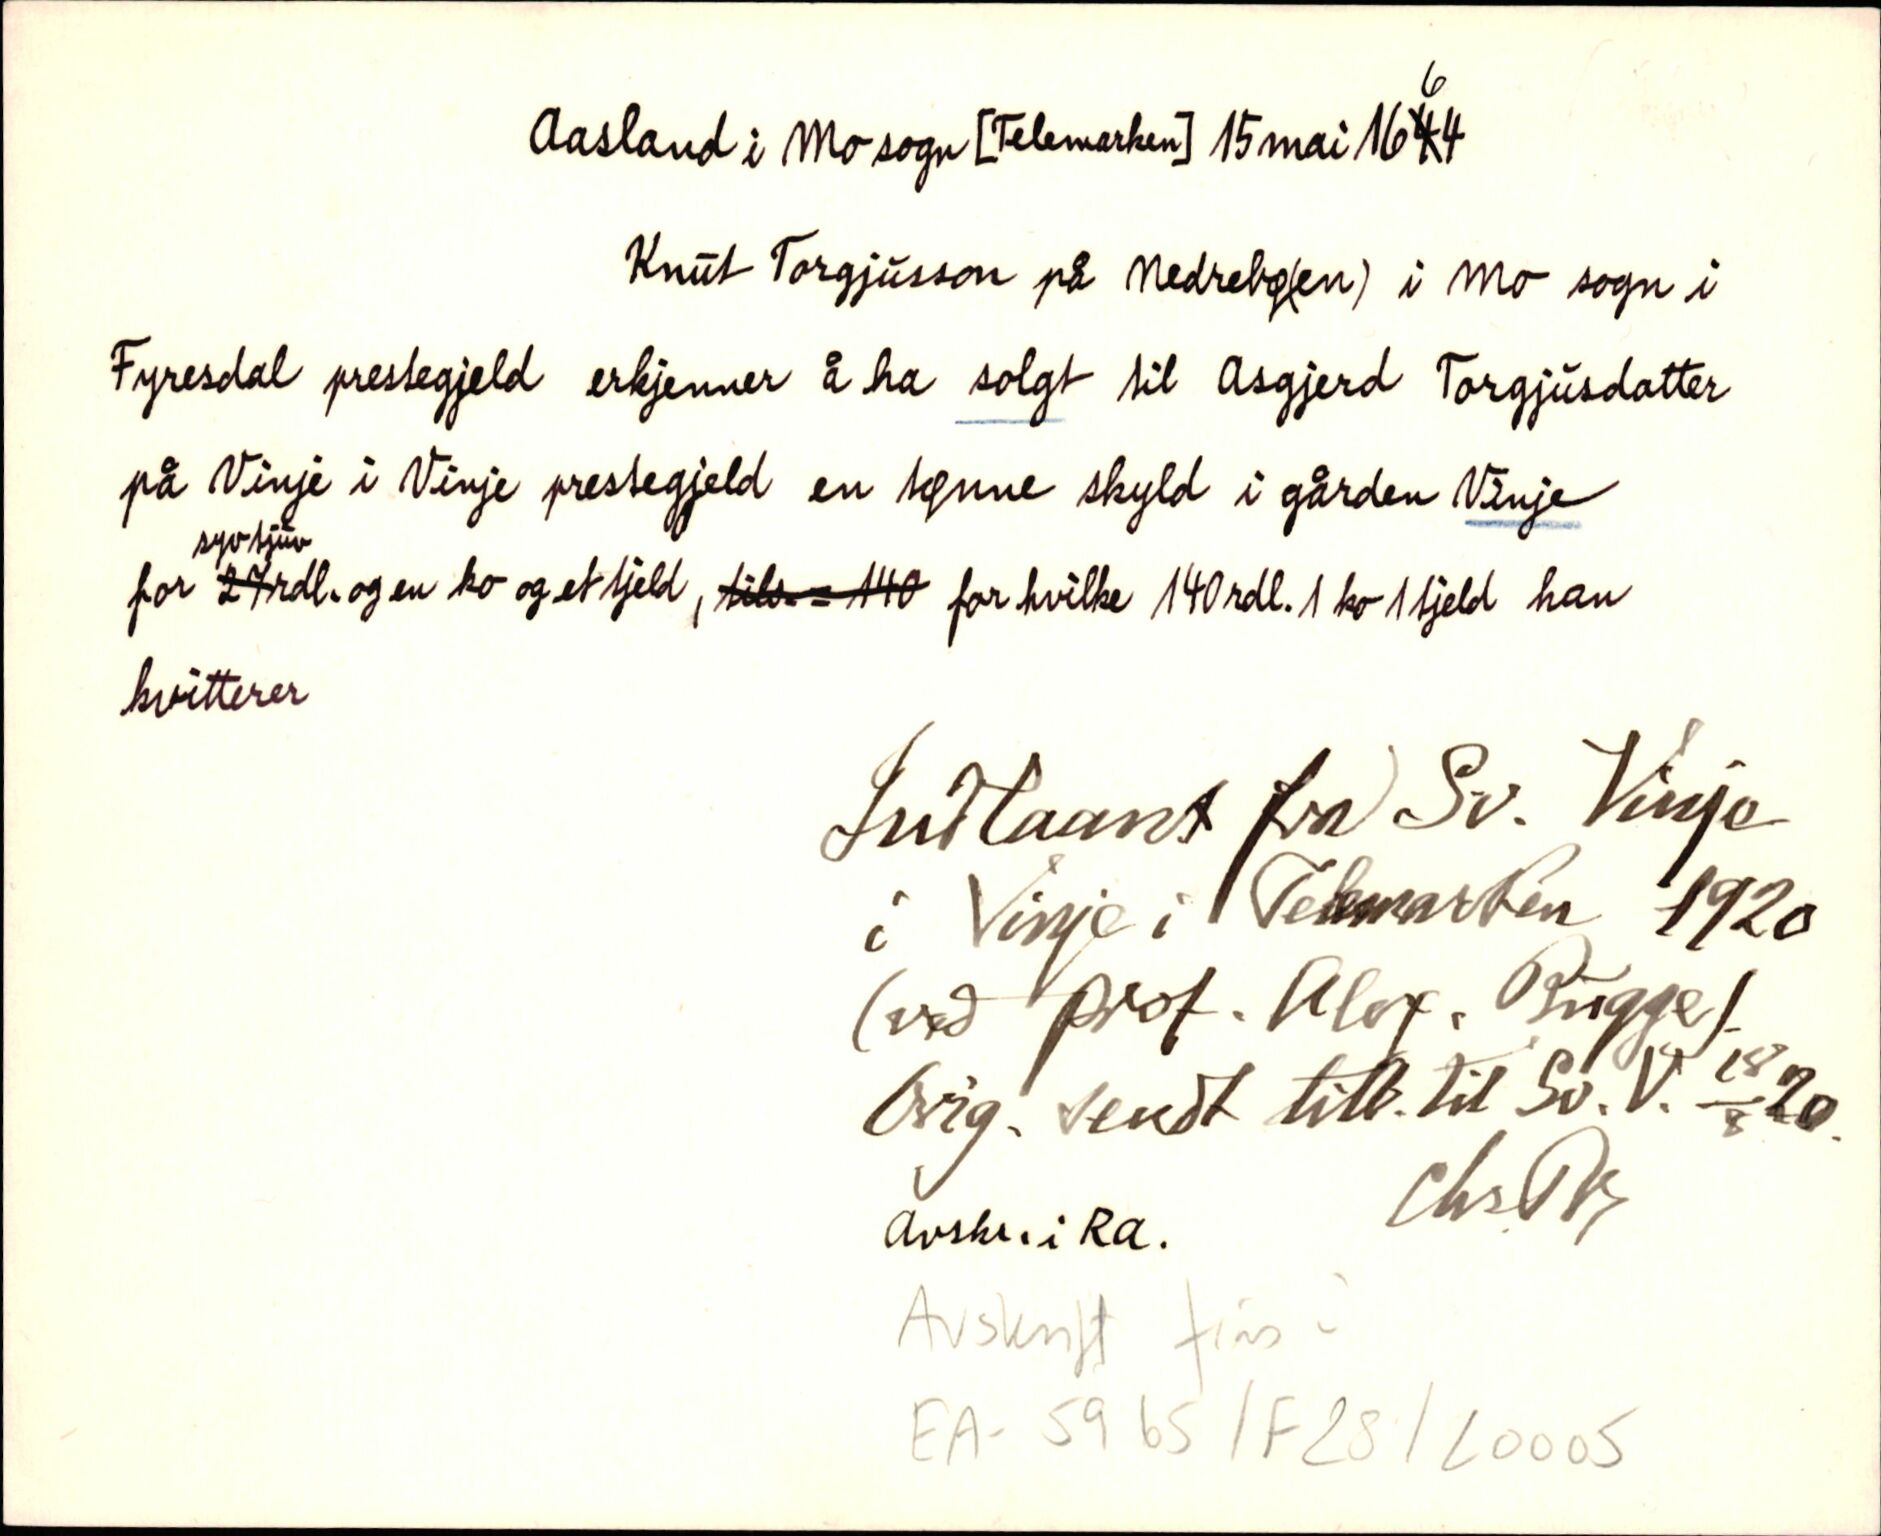 Aasland i Mo sogn [Telemarken] 15 mai 1664
Knut Torgjusson på Nedrebø(en) i Mo sogn i
Fyresdal prestegjeld erkjenner å ha solgt til Asgjerd Torgjusdatter
på Vinje i Vinje prestegjeld en tønne skyld i gården Vinje
syv tjuv
for 27 rdl. og en ko og et tjeld, tils. = 140 for hvilke 140 rdl. 1 ko 1 tjeld han
kvitterer
Indlaant fra Sv. Vinje
i Vinje i Telemarken 1920
(ved prof. Alex. Bugge).
Orig. sendt tilb. til Sv. V. 18/8 20.
Chr.
Avskr. i RA.
Avskrift fins i
EA-5965/F28/L0005